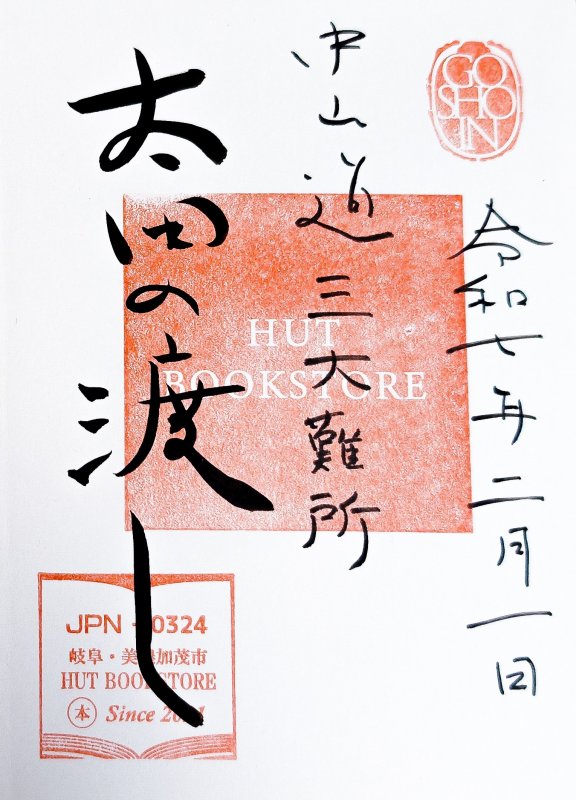 GO
SHO
IN
令和七年二月一日
中山道 三大難所
太田の渡し
HUT
BOOKSTORE
JPN - 0324
岐阜・美濃加茂市
HUT BOOKSTORE
本 Since